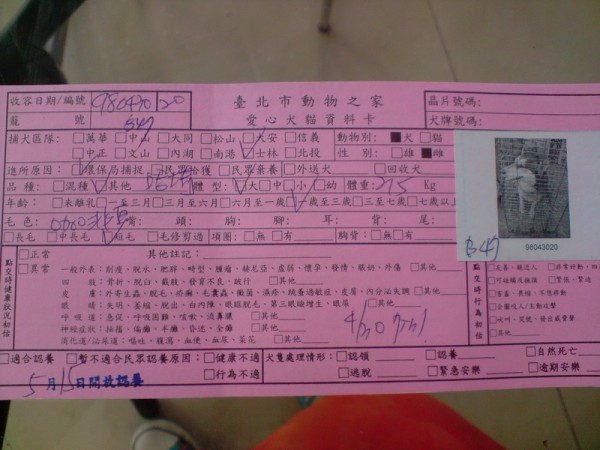 收容日期/編號 980430 20 臺北市動物之家 晶片號碼:
籠號 B47 愛心犬貓資料卡 犬牌號碼:
捕犬區隊: □萬華 □中山 □大同 □松山 □大安 □信義 動物別: ■犬 □貓
□中正 □文山 □內湖 □南港 □士林 □北投 性別: □雄 ■雌
進所原因: □環保局捕捉 □民眾拾獲 □民眾棄養 □外送犬 □回收犬
品種: □混種 □其他 體型: □大 □中 □小 □幼 體重: Kg
年齡: □未離乳 □一至三月 □三至六月 □六月至一歲 □一歲至三歲 □三至七歲 □七歲以上
毛色: 背: 頭: 胸: 腳: 耳: 尾:
□長毛 □中長毛 □短毛 □毛修剪過 項圈: □無 □有 胸背: □無 □有
B47 98043020
點交時健康狀況初估
□正常 其他註記:
□異常 一般外表: 削瘦、脫水、肥胖、畸型、腫瘤、赫尼亞、虛弱、懷孕、發情、脹奶、外傷 □其他
四肢: 骨折、脫臼、截肢、發育不良、跛行 □其他
皮膚: 外寄生蟲、脫毛、疥癬、毛囊蟲、黴菌、濕疹、跳蚤過敏症、皮屑、內分泌失調 □其他
眼睛: 失明、萎縮、脫出、白內障、眼瞼脫毛、第三眼瞼增生、眼屎 □其他
呼吸道: 急促、呼吸困難、咳嗽、流鼻膿 □其他
神經症狀: 抽搐、偏癱、半癱、昏迷、全癱 □其他
消化道/泌尿道: 嘔吐、腹瀉、血便、血尿、菜花 □其他
4/30
點交時行為初估
□其他
□適合認養 □暫不適合民眾認養原因: □健康不適 犬隻處理情形: □認領 □認養 □自然死亡
□行為不適 □逃脫 □緊急安樂 □逾期安樂
5月15日開放認養